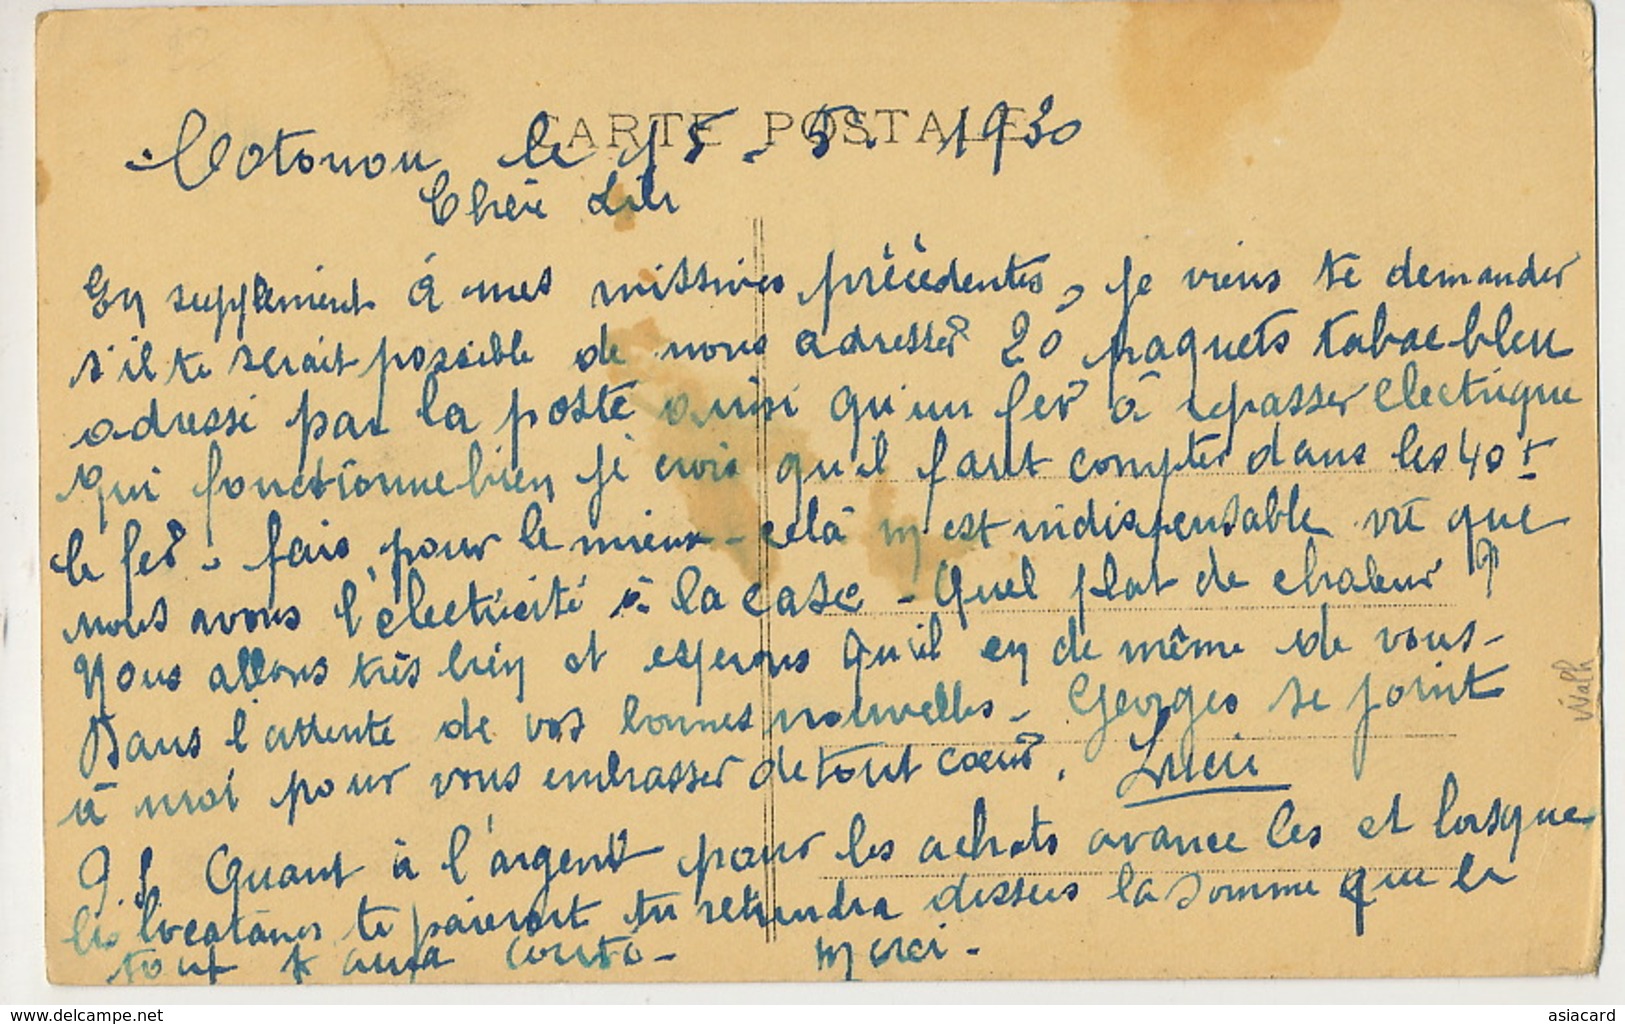 CARTE POSTALE
Cotonou le 15 - 5 - 1930
Chère Lili
En supplément à mes missives précédentes, je viens te demander
s'il te serait possible de nous adresser 20 paquets tabac bleu
adressé par la poste ainsi qu'un fer à repasser electrique
qui fonctionne bien je crois qu'il faut compter dans les 40 f
le fer - fais pour le mieux - celà m'est indispensable vu que
nous avons l'électricité à la case - Quel plat de chaleur ?
Nous allons très bien et esperons qu'il en de même de vous -
Dans l'attente de vos bonnes nouvelles - Georges se joint
à moi pour vous embrasser de tout cœur. Lucie
P.S Quant à l'argent pour les achats avance les et lorsque
les locataires te paieront tu retiendra dessus la somme que le
tout t'aura couté - Merci -
Walh
www.delcampe.net
asiacard